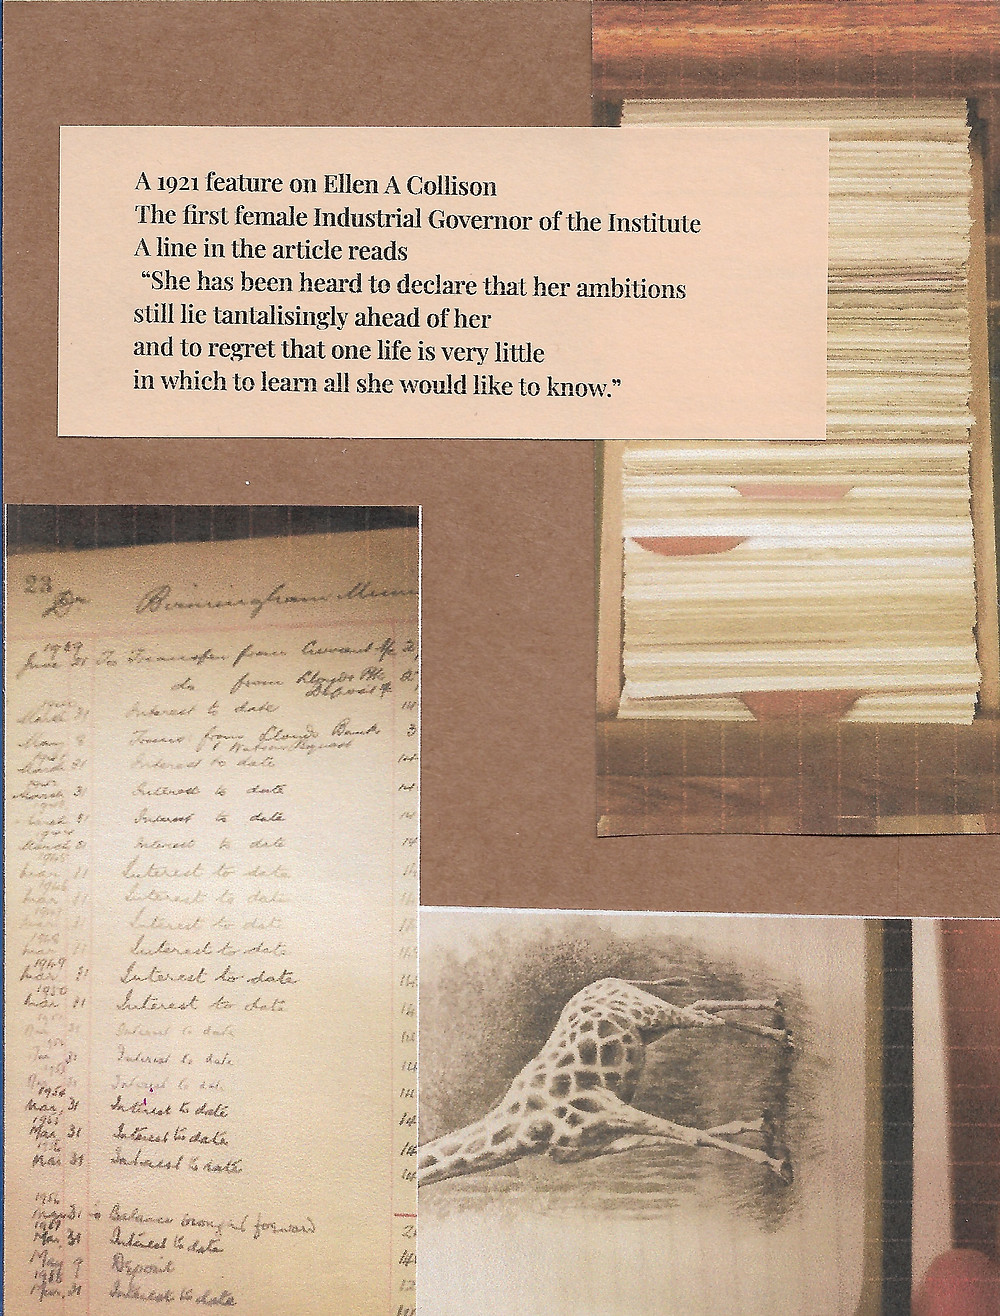 A 1921 feature on Ellen A Collison
The first female Industrial Governor of the Institute
A line in the article reads
“She has been heard to declare that her ambitions
still lie tantalisingly ahead of her
and to regret that one life is very little
in which to learn all she would like to know.”
23
Dr Birmingham
June 21 To Transfer from Current A/c
do from Lloyds Bk
Deposit
March 31 Interest to date
from Lloyds Bank
March 31 Interest to date
March 31 Interest to date
March 31 Interest to date
March 31 Interest to date
1945
Mar 31 Interest to date
1946
Mar 31 Interest to date
Interest to date
1948
Mar 31 Interest to date
1949
Mar 31 Interest to date
1950
Mar 31 Interest to date
Interest to date
31 Interest to date
Interest to date
1954
Mar, 31 Interest to date
1955
Mar, 31 Interest to date
1956
Mar 31 Interest to date
1956
Mar 31 To Balance brought forward
1957
Mar, 31 Interest to date
May 9 Deposit
1958
Mar, 31 Interest to date